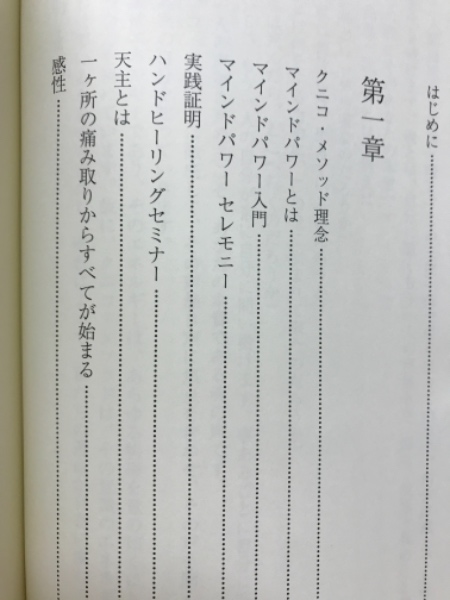 はじめに
第一章
クニコ・メソッド理念
マインドパワーとは
マインドパワー入門
マインドパワー セレモニー
実践証明
ハンドヒーリングセミナー
天主とは
一ヶ所の痛み取りからすべてが始まる
感性